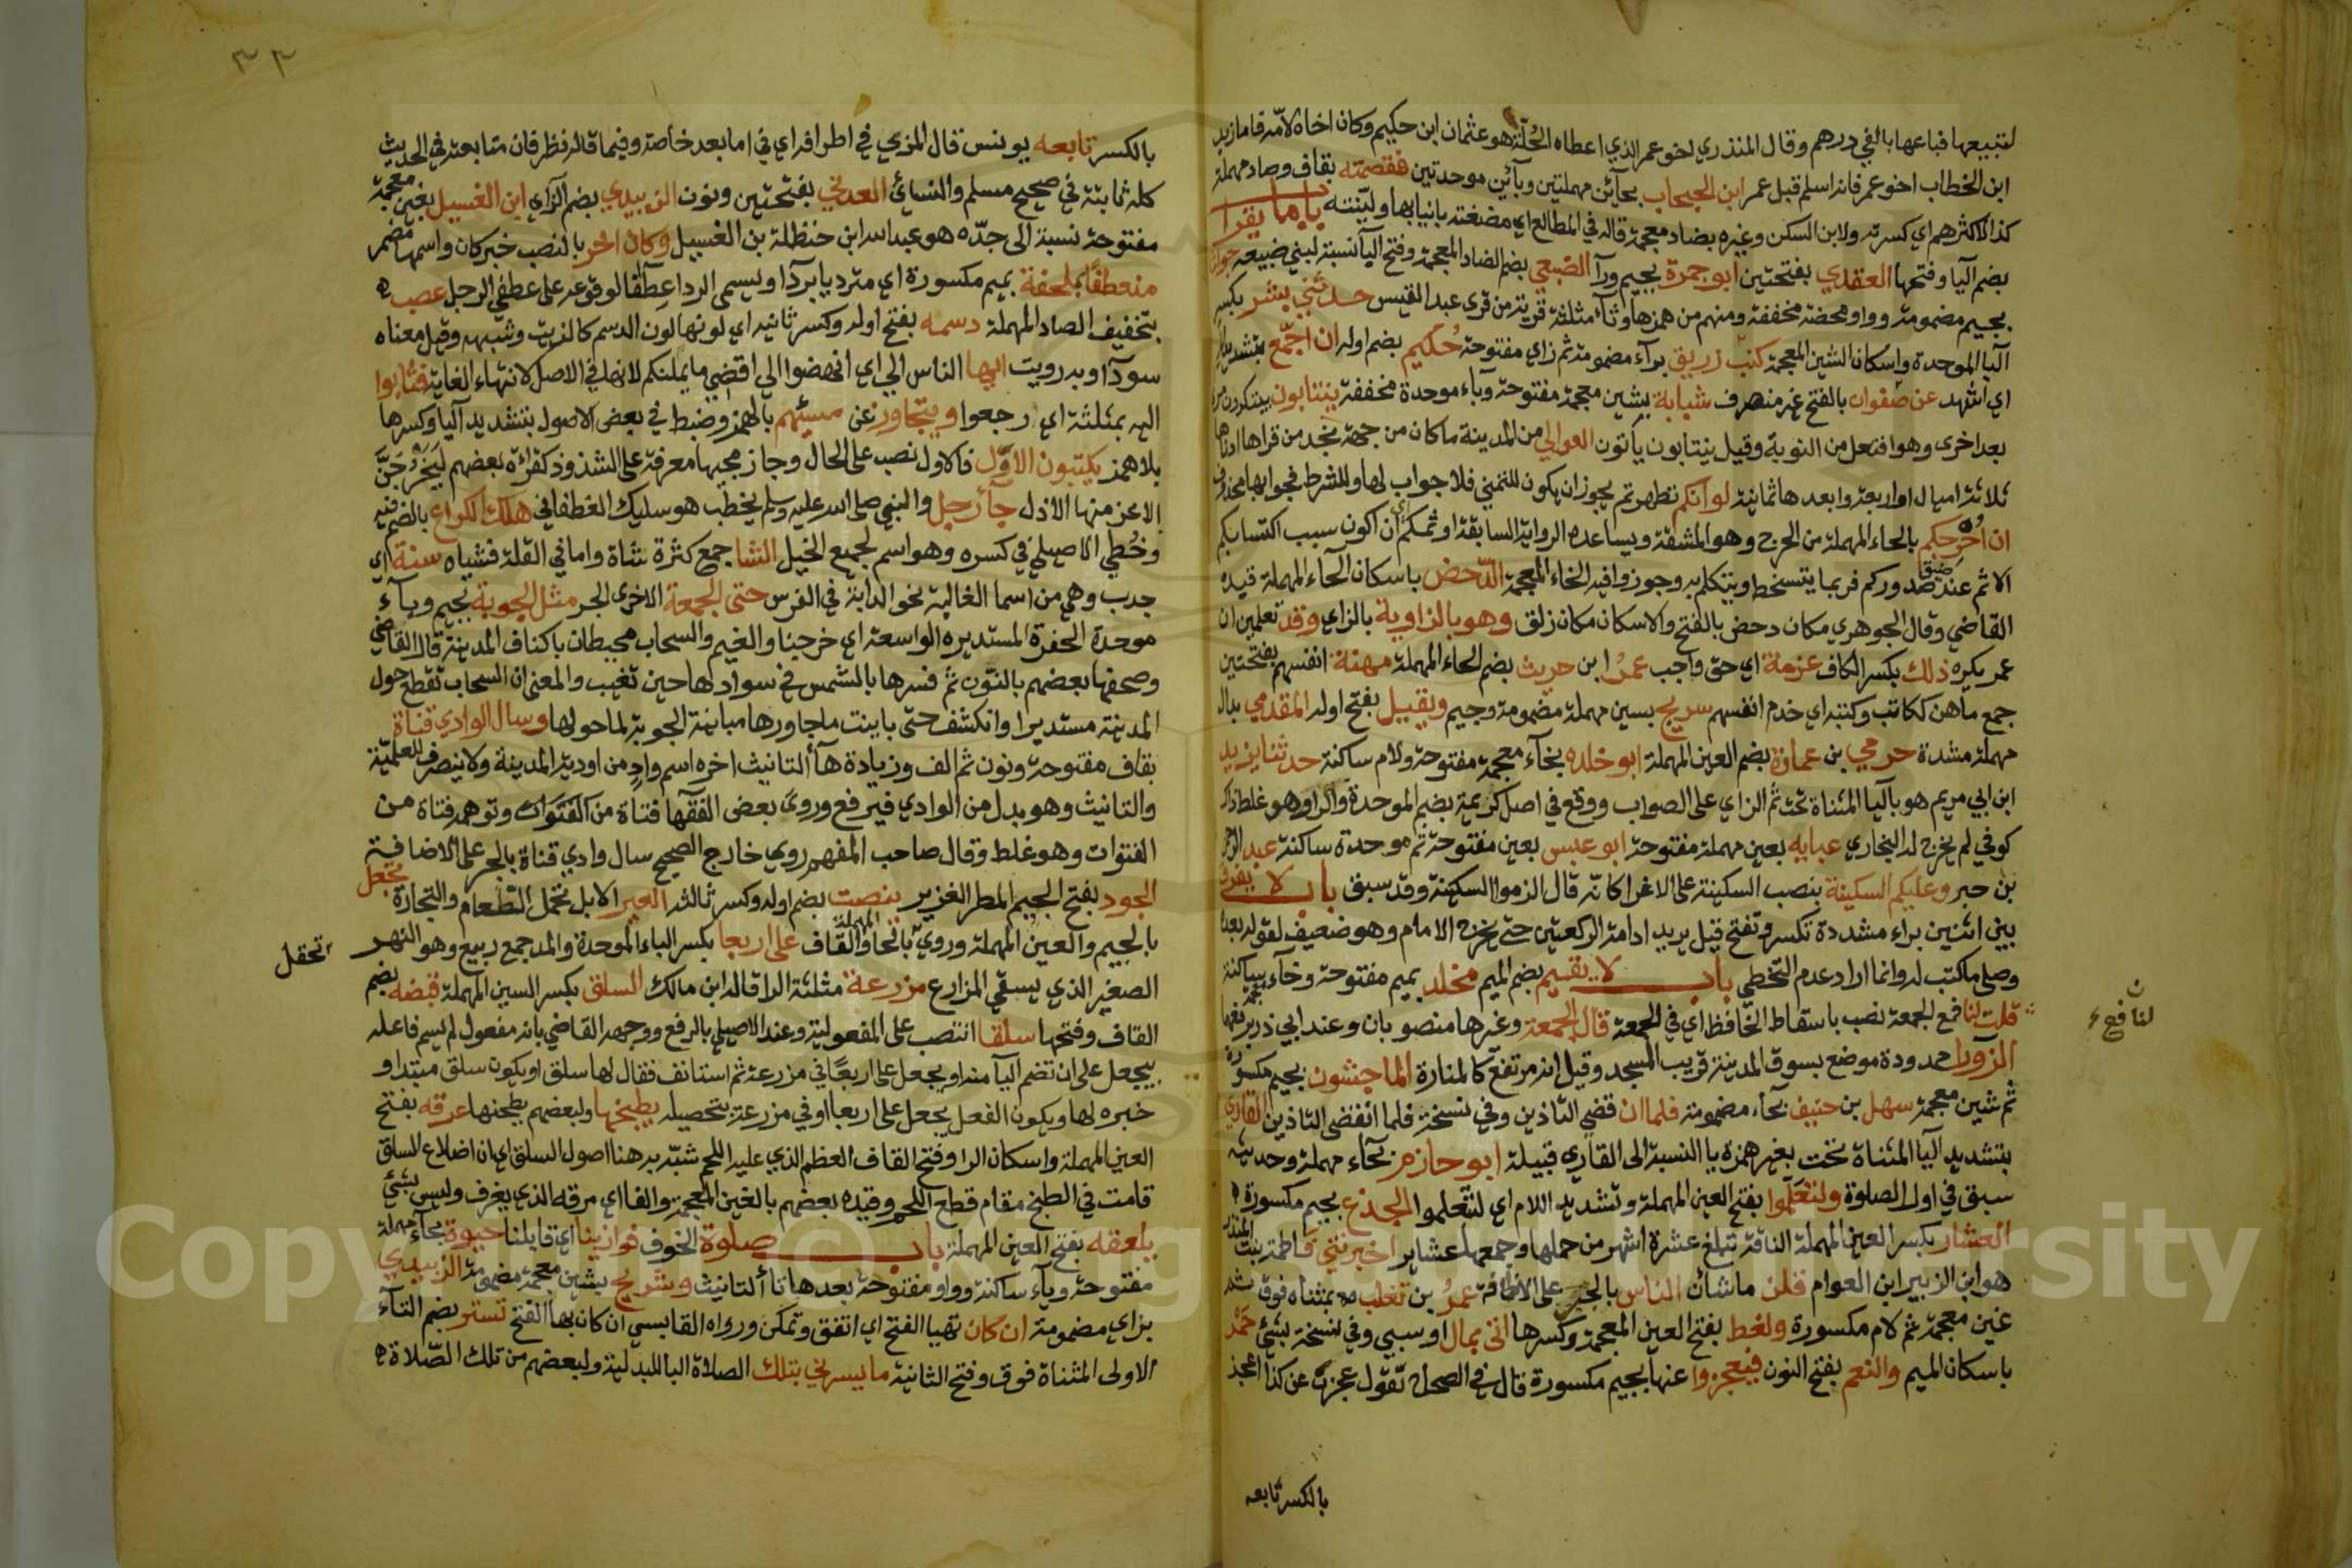 لتبيعها فباعها بالفي درهم وقال المنذري اخو عمر الذي اعطاه الحُلّة هو عثمان ابن حكيم وكان اخاه لامّه فاما زيد
ابن الخطاب اخو عمر فانه اسلم قبل عمر ابن الحبحاب بحآئن مهملتين وبآئين موحدتين فقصمته بقاف وصاد مهملة
كذا لاكثرهم اي كسرته ولابن السكن وغيره بضاد معجمة قاله في المطالع اي مضغته بانيابها ولينته باب ما يقرا
بضم اليا وفتحها العقدي بفتحتين ابو جمرة بجيم ورآ الضبعي بضم الضاد المعجمة وفتح الباء نسبة لبني ضبيعه جواثا
بجيم مضمومة وواو محضة مخففة ومنهم من همزها وثآء مثلثة قرية من قرى عبد القيس حدثني بشر بكسر
البا الموحدة واسكان الشين المعجمة كتب زريق برآء مضمومة ثم زاي مفتوحة حُكيم بضم اوله ان اجمّع بتشديد
اي اشهد عن صفوان بالفتح غير منصرف شبابة بشين معجمة مفتوحة وباء موحدة مخففة ينتابون
بعد اخرى وهو افتعل من النوبة وقيل ينتابون ياتون العوالي من المدينة ما كان من جهة نجد من قراها ادناها
ثلاثة اميال او اربعة وابعدها ثمانية لو انكم تطهرتم يجوز ان يكون للتمني فلا جواب لها وللشرط فجوابها محذوف
ان اُحرجكم بالحاء المهملة من الحرج وهو المشقة ويساعده الرواية السابقة اوثمكم اي ان اكون سبب اكتسابكم
الاثم عند ضيق صدوركم فربما يتسخط ويتكلم به وجوزوا فيه الخاء المعجمة الدّحض باسكان الحاء المهملة قيده
القاضي وقال الجوهري مكان دحض بالفتح والاسكان مكان زلق وهو بالزاوية بالزاي وقد تعلمين ان
عمر يكره ذلك بكسر الكاف عزمة اي حق واجب عمرُ ابن حريث بضم الحاء المهملة مهنة انفسهم بفتحتين
جمع ماهن ككاتب وكتبه اي خدم انفسهم سريج بسين مهملة مضمومة وجيم ويقيل بفتح اوله المقدمي بدال
مهملة مشددة حرمي بن عمارة بضم العين المهملة ابو خلده بخآء معجمة مفتوحة ولام ساكنة حدثنا يزيد
ابن ابي مريم هو باليا المثناة تحت ثم الزاي على الصواب ووقع في اصل كريمة بضم الموحدة والراء وهو غلط ذاك
كوفي لم يخرج له البخاري عبايه بعين مهملة مفتوحة ابو عبس بعين مفتوحة ثم موحدة ساكنة عبد الرحمن
بن جبر وعليكم السكينة بنصب السكينة على الاغرا كانه قال الزموا السكينة وقد سبق باب لا يفرق
بين اثنين براء مشددة تكسر وتفتح قيل يريد ادامة الركعتين حتى يخرج الامام وهو ضعيف لقوله بعد
وصلى ما كتب له وانما اراد عدم التخطي باب لا يقيم بضم الميم مخلد بميم مفتوحة وخآء معجمة ساكنة
قلت لنافع الجمعة نصب باسقاط الخافظ اي في الجمعة قال الجمعة وغيرها منصوبان وعند ابي ذر برفعهما
الزورا ممدودة موضع بسوق المدينة قريب المسجد وقيل انه مرتفع كالمنارة الماجشون بجيم مكسورة
ثم شين معجمة سهل بن حنيف بحآء مضمومة فلما ان قضي التاذين وفي نسخة فلما انقضى التاذين القاري
بتشديد اليا المثناة تحت بغير همزه يا النسبة الى القاري قبيلة ابو حازم بحآء مهملة وحديثه
سبق في اول الصلوة ولتعَلّموا بفتح العين المهملة وتشديد اللام اي لتتعلموا الجذع بجيم مكسورة
العشار بكسر العين المهملة الناقة تبلغ عشرة اشهر من حملها وجمعها عشاير اخبرتني فاطمة بنت المنذر
هو ابن الزبير ابن العوام قلن ما شأن الناس بالجر على الاضافة عمرُ بن تغلب بمثناه فوق ثم
غين معجمة ثم لام مكسورة ولغط بفتح الغين المعجمة وكسرها اتى بمال او سبي وفي نسخة بشئ حُمر
باسكان الميم والنعم بفتح النون فيعجزوا عنها بجيم مكسورة قال في الصحاح تقول عجزت عن كذا اعجز
لنافع
بالكسر تابعه
٣٣
بالكسر تابعه يونس قال المزي في اطرافه اي في اما بعد خاصة وفيما قاله نظر فان متابعته في الحديث
كله ثابتة في صحيح مسلم والنسائي العدني بفتحتين ونون الزبيدي بضم الزاي ابن الغسيل بغين معجمة
مفتوحة نسبة الى جدّه هو عبد الله ابن حنظلة بن الغسيل وكان اخر بالنصب خبر كان واسمها مضمر
منعطفًا بملحفة بميم مكسورة اي مترديا بردا ويسمى الردا عِطَافا لوقوعه على عطفي الرجل عصب
بتخفيف الصاد المهملة دسمه بفتح اوله وكسر ثانيه اي لونها لون الدسم كالزيت وشبهه وقيل معناه
سوداء وبه رويت ايها الناس الي اي انهضوا الي اقضي ما يملنكم لانها في الاصل لانتهاء الغاية فثابوا
اليه بمثلثة اي رجعوا ويتجاوز عن مسيئهم بالهمز وضبط في بعض الاصول بتشديد اليا وكسرها
بلا همز يكتبون الاوّل فالاول نصب على الحال وجاز مجيها معرفة على الشذوذ كقراءة بعضهم ليَخرُجَنَّ
الاعز منها الاذل جآ رجل والنبي صلى الله عليه وسلم يخطب هو سليك الغطفاني هلك الكراع بالضم فيه
وخُطي الاصيلي في كسره وهو اسم لجميع الخيل الشا جمع كثرة شاة واما في القلة فشياه سنة اي
جدب وهي من اسما الغالبة نحو الدابة في الفرس حتى الجمعة الاخرى الجر مثل الجوبة بجيم وبآء
موحدة الحفرة المستديره الواسعة اي خرجنا والغيم والسحاب محيطان باكناف المدينة قال القاضي
وصحفها بعضهم بالنون ثم فسرها بالشمس في سوادها حين تغيب والمعنى ان السحاب تقطع حول
المدينة مستديرا وانكشف حتى باينت ما جاورها مباينة الجوبة لما حولها وسال الوادي قناة
بقاف مفتوحة ونون ثم الف وزيادة هآ التانيث اخره اسم وادٍ من اودية المدينة ولا ينصرف للعلمية
والتانيث وهو بدل من الوادي فيرفع وروى بعض الفقها قناة من القنوات وتوهمه قناة من
القنوات وهو غلط وقال صاحب المفهم روي خارج الصحيح سال وادي قناة بالجر على الاضافة
الجود بفتح الجيم المطر الغزير ينصت بضم اوله وكسر ثالثه العير الابل تحمل الطعام والتجارة تجعل
بالجيم والعين المهملة وروي بالحا المهملة والقاف على اربعا بكسر الباء الموحدة والمد جمع ربيع وهو النهر
الصغير الذي يسقي المزارع مزرعة مثلثة الرا قاله ابن مالك السلق بكسر السين المهملة قبضه بضم
القاف وفتحها سلقا انتصب على المفعولية وعند الاصيلي بالرفع ووجهه القاضي بانه مفعول لم يسم فاعله
بيجعل على ان تضم اليآ منه او يجعل على اربعًا في مزرعة ثم استانف فقال لها سلق او يكون سلق مبتدا و
خبره لها ويكون الفعل يجعل على اربعا او في مزرعة بتحصيله يطبخها ولبعضهم يطحنها عرقه بفتح
العين المهملة واسكان الرا وفتح القاف العظم الذي عليه اللحم شبّه به هنا اصول السلق اي ان اضلاع السلق
قامت في الطبخ مقام قطع اللحم وقيده بعضهم بالغين المعجمة والفا اي مرقه الذي يغرف وليس بشئ
يلعقه بفتح العين المهملة باب صلوة الخوف فوازينا اي قابلنا حيوة بحآء مهملة
مفتوحة ويآء ساكنة وواو مفتوحة بعدها تا التانيث وشريح بشين معجمة مضمومة الزبيدي
بزاي مضمومة ان كان تهيا الفتح اي اتفق وتمكن ورواه القابسي ان كان بها الفتح تستر بضم التآء
الاولى المثناة فوق وفتح الثانية ما يسرني بتلك الصلاة البا للبدلية ولبعضهم من تلك الصّلاة
تحقل
Copyright © King Saud University